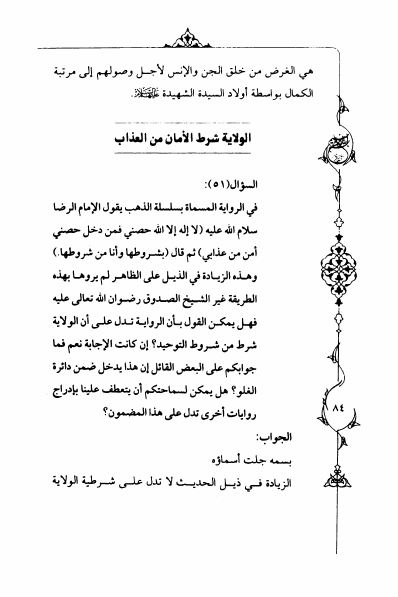 هي الغرض من خلق الجن والإنس لأجل وصولهم إلى مرتبة
الكمال بواسطة أولاد السيدة الشهيدة
الولاية شرط الأمان من العذاب
السؤال(٥١):
في الرواية المسماة بسلسلة الذهب يقول الإمام الرضا
سلام الله عليه (لا إله إلا الله حصني فمن دخل حصني
أمن من عذابي) ثم قال (بشروطها وأنا من شروطها.)
وهذه الزيادة في الذيل على الظاهر لم يروها بهذه
الطريقة غير الشيخ الصدوق رضوان الله تعالى عليه
فهل يمكن القول بأن الرواية تدل على أن الولاية
شرط من شروط التوحيد؟ إن كانت الإجابة نعم فما
جوابكم على البعض القائل إن هذا يدخل ضمن دائرة
الغلو؟ هل يمكن لسماحتكم أن يتعطف علينا بإدراج
روايات أخرى تدل على هذا المضمون؟
الجواب:
بسمه جلت أسماؤه
الزيادة في ذيل الحديث لا تدل على شرطية الولاية
٨٤